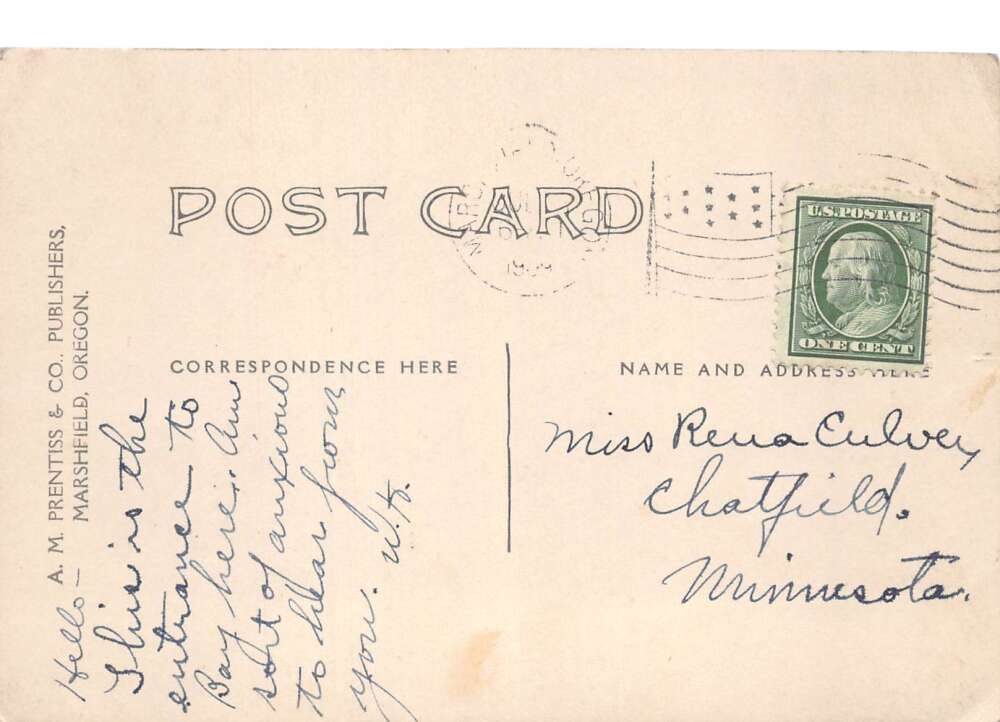 POST CARD
1909
U.S. POSTAGE
ONE CENT
A. M. PRENTISS & CO., PUBLISHERS,
MARSHFIELD, OREGON.
CORRESPONDENCE HERE
NAME AND ADDRESS HERE
Hello –
This is the
entrance to
Bay here. Am
sort of anxious
to hear from
you.
Miss Rena Culver,
Chatfield.
Minnesota.